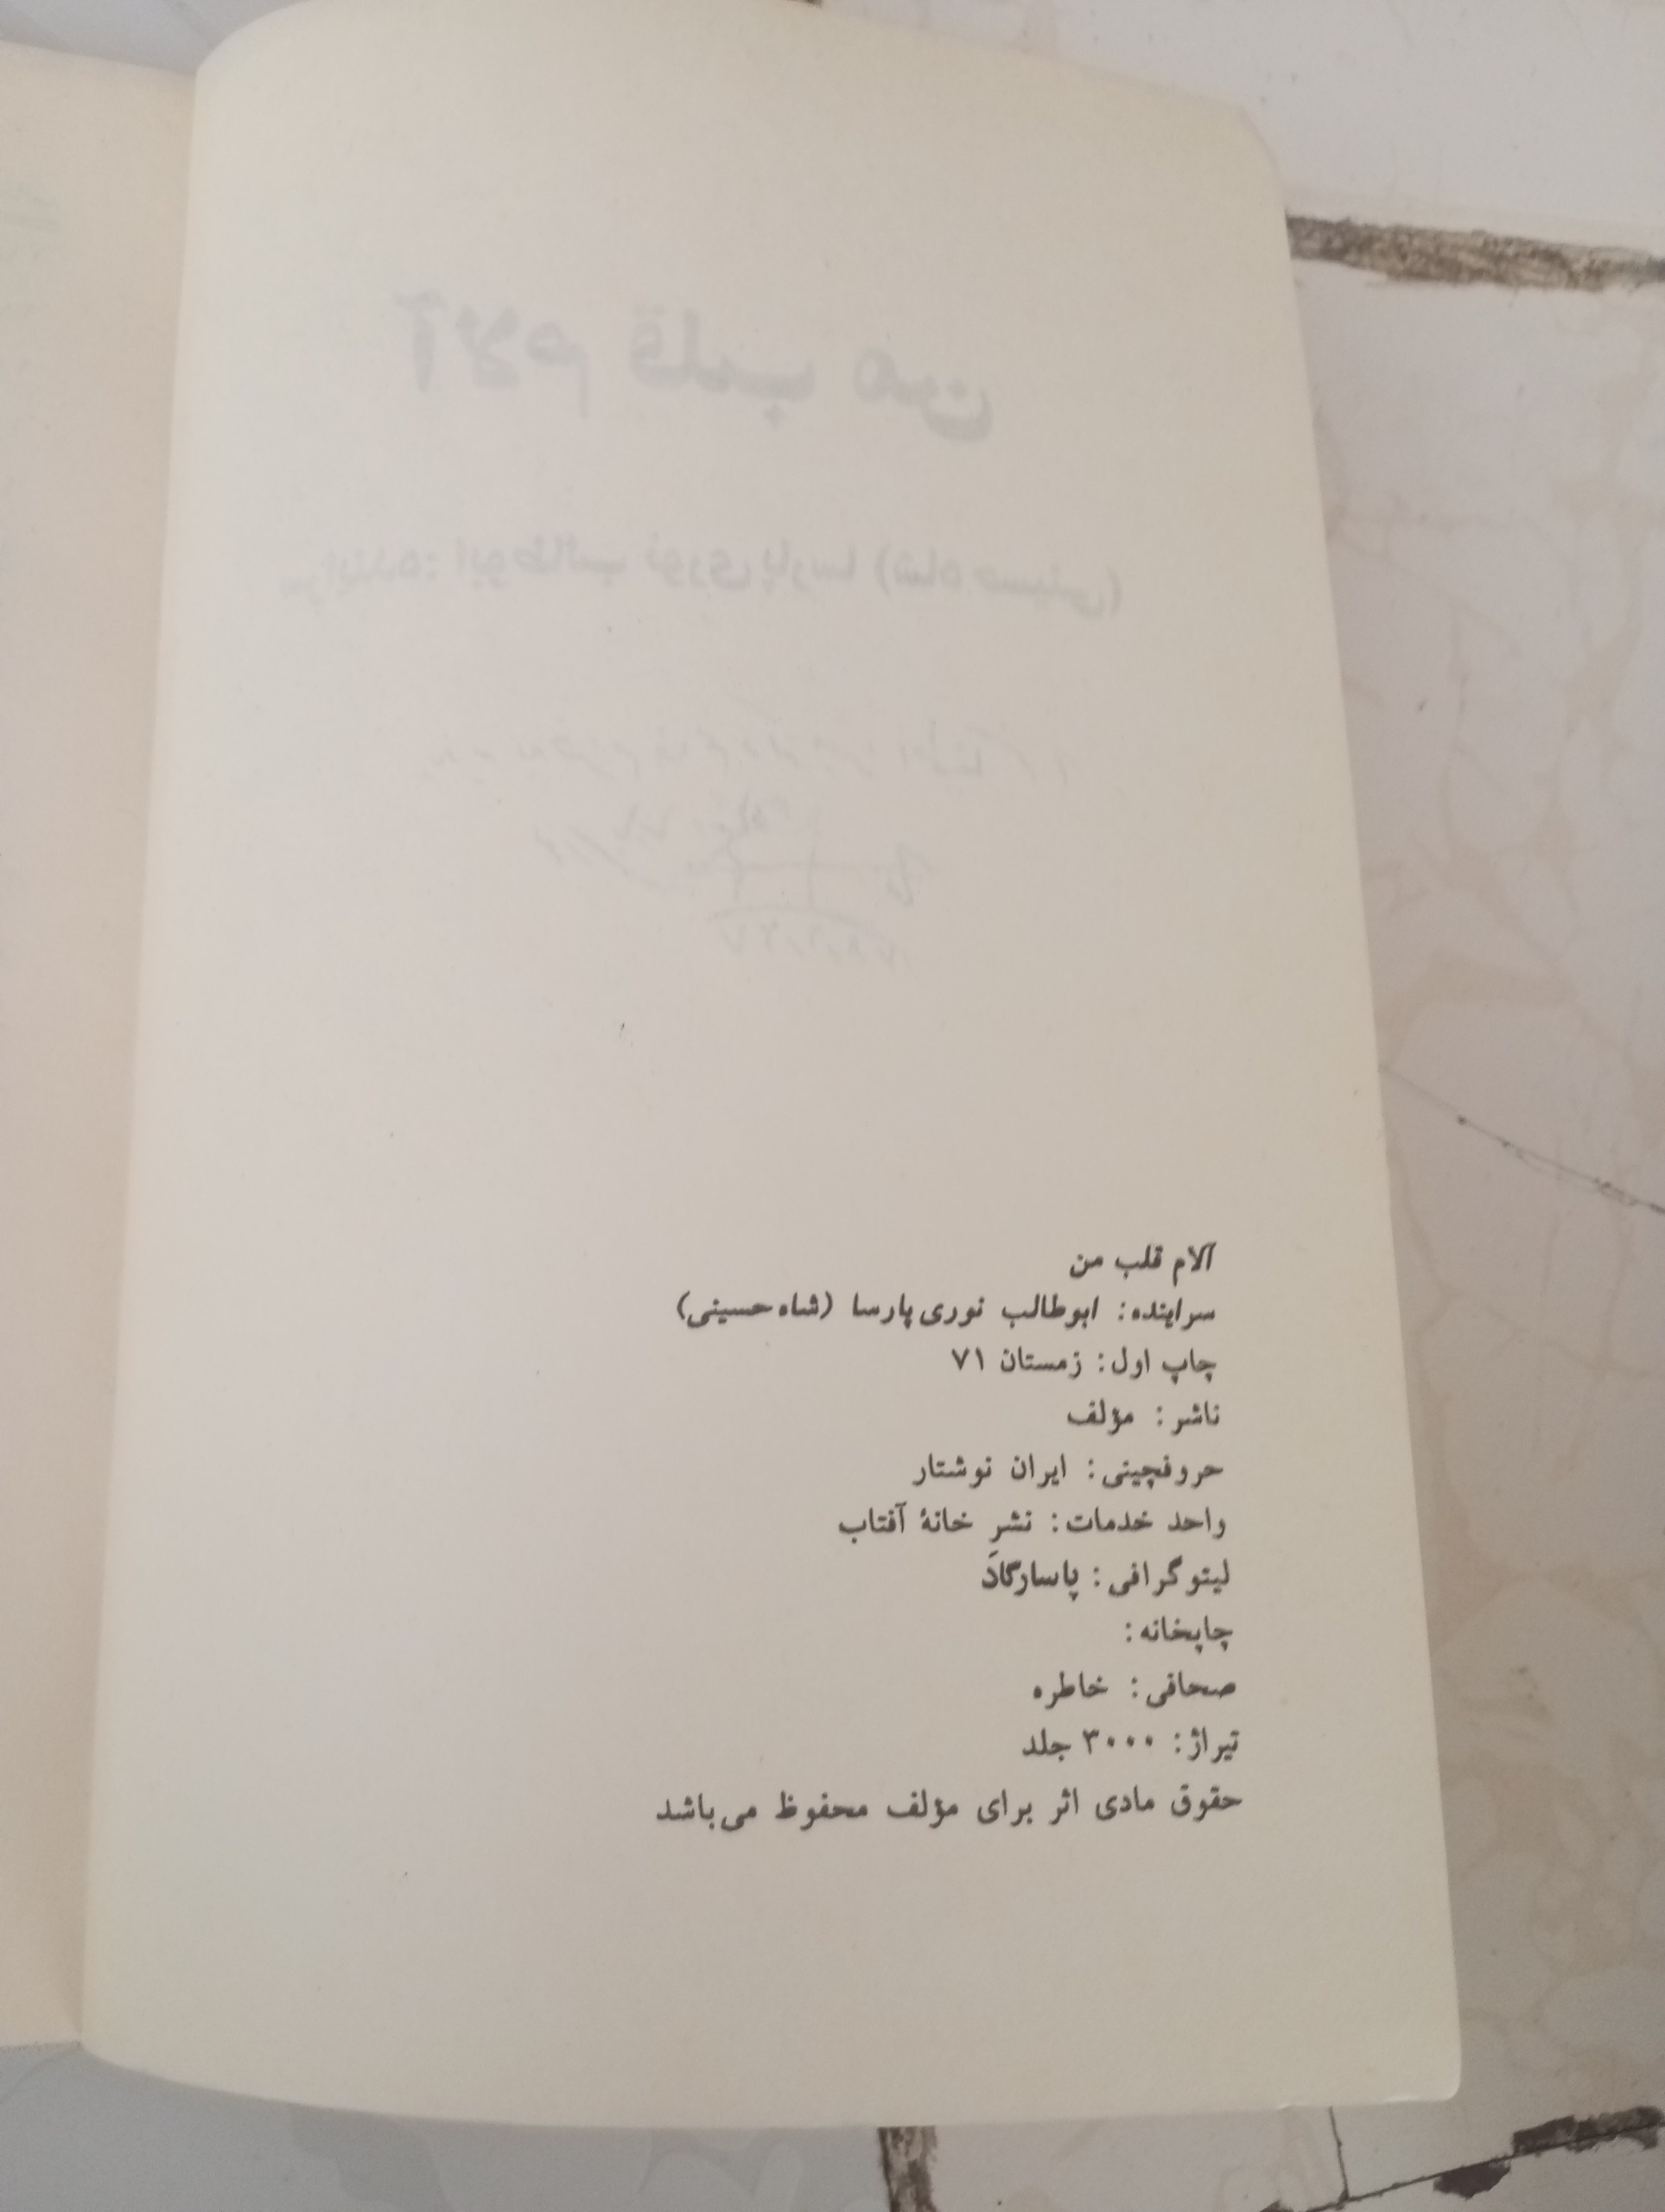 آلام قلب من
سراینده: ابوطالب نوری پارسا (شاه‌حسینی)
آلام قلب من
سراینده: ابوطالب نوری پارسا (شاه‌حسینی)
چاپ اول: زمستان ۷۱
ناشر: مؤلف
حروفچینی: ایران نوشتار
واحد خدمات: نشرِ خانهٔ آفتاب
لیتوگرافی: پاسارگاد
چاپخانه:
صحافی: خاطره
تیراژ: ۳۰۰۰ جلد
حقوق مادی اثر برای مؤلف محفوظ می‌باشد